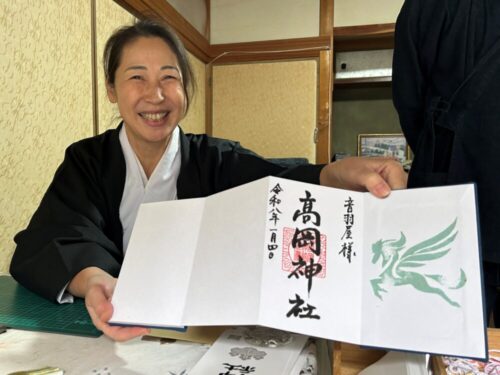 音羽屋様
高岡神社
令和八年一月四日
社